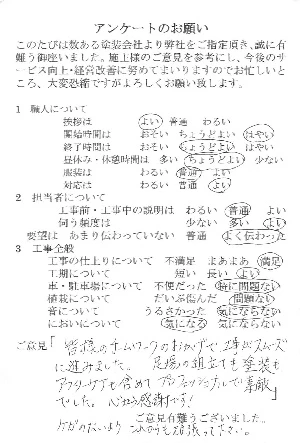 アンケートのお願い
このたびは数ある塗装会社より弊社をご指定頂き、誠に有
難う御座いました。施主様のご意見を参考にし、今後のサ
ービス向上・経営改善に努めてまいりますのでお忙しいと
ころ、大変恐縮ですがよろしくお願い致します。
1 職人について
挨拶は よい 普通 わるい
開始時間は おそい ちょうどよい はやい
終了時間は おそい ちょうどよい はやい
昼休み・休憩時間は 多い ちょうどよい 少ない
服装は わるい 普通 よい
対応は わるい 普通 よい
2 担当者について
工事前・工事中の説明は わるい 普通 よい
伺う頻度は 少ない 多い よい
要望は あまり伝わっていない 普通 よく伝わった
3 工事全般
工事の仕上りについて 不満足 まあまあ 満足
工期について 短い 長い よい
車・駐車場について 不便だった 特に問題ない
植栽について だいぶ傷んだ 問題ない
音について うるさかった 気にならない
においについて 気になる 気にならない
ご意見「皆様のチームワークのおかげで工事がスムーズ
に進みました。足場の組立ても塗装も
アフターケアも含めてプロフェッショナルで素敵
でした。心から感謝です!」
ご意見有難うございました。
ケガのないよう これからも頑張って下さい。